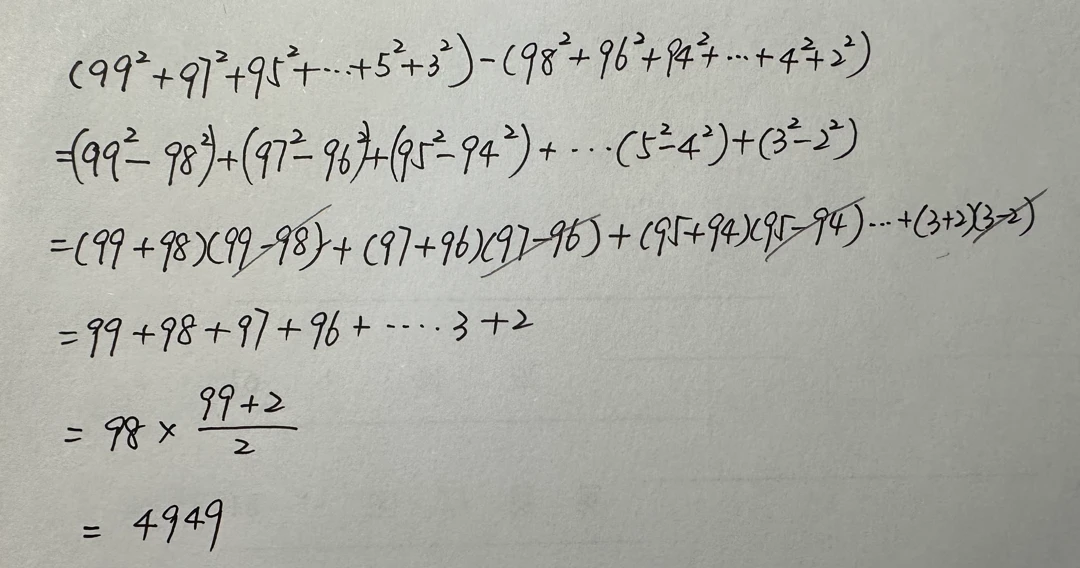 (99²+97²+95²+...+5²+3²)-(98²+96²+94²+...+4²+2²)
=(99²-98²)+(97²-96²)+(95²-94²)+...(5²-4²)+(3²-2²)
=(99+98)(99-98)+(97+96)(97-96)+(95+94)(95-94)...+(3+2)(3-2)
=99+98+97+96+....3+2
=98×\frac{99+2}{2}
=4949